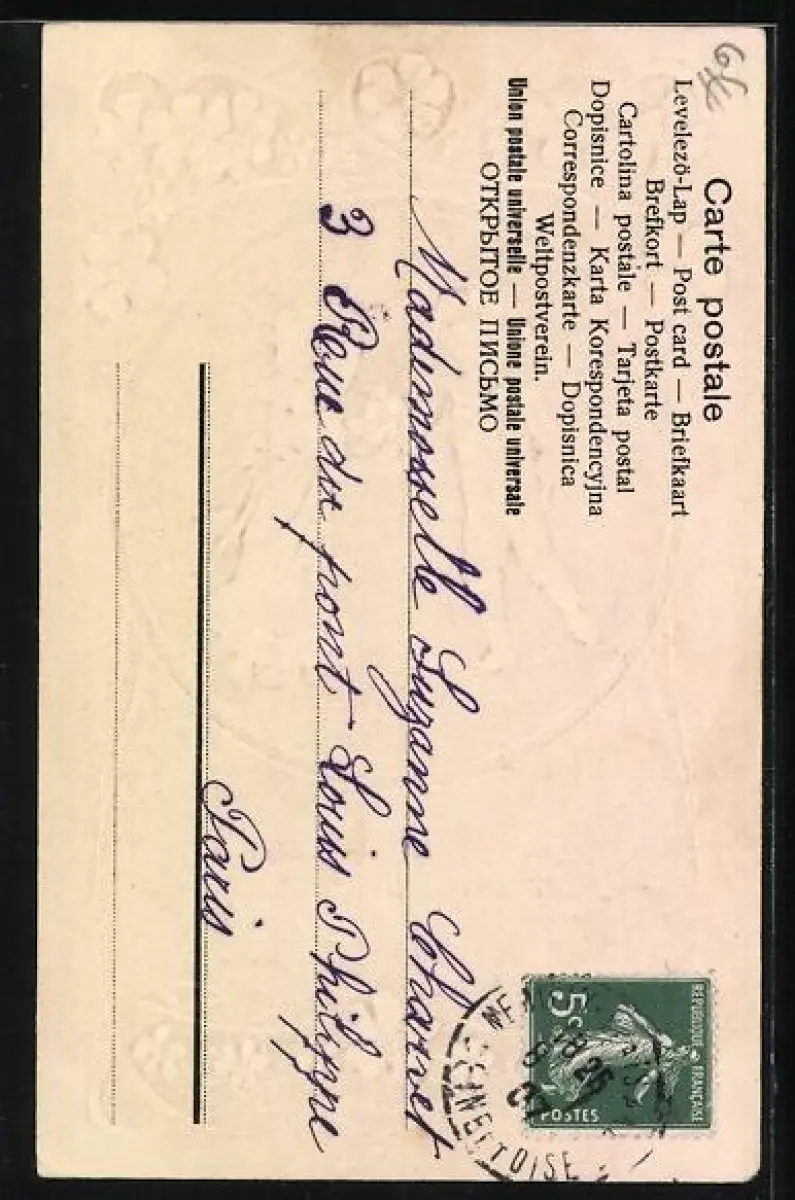 Carte postale
Levelező-Lap — Post card — Briefkaart
Brefkort — Postkarte
Cartolina postale — Tarjeta postal
Dopisnice — Karta Korespondencyjna
Correspondenzkarte — Dopisnica
Weltpostverein.
Union postale universelle — Unione postale universale
ОТКРЫТОЕ ПИСЬМО
REPUBLIQUE FRANÇAISE
5c
POSTES
SEINE ET OISE
Mademoiselle Suzanne Charvet
3 Rue du pont Louis Philippe
Paris